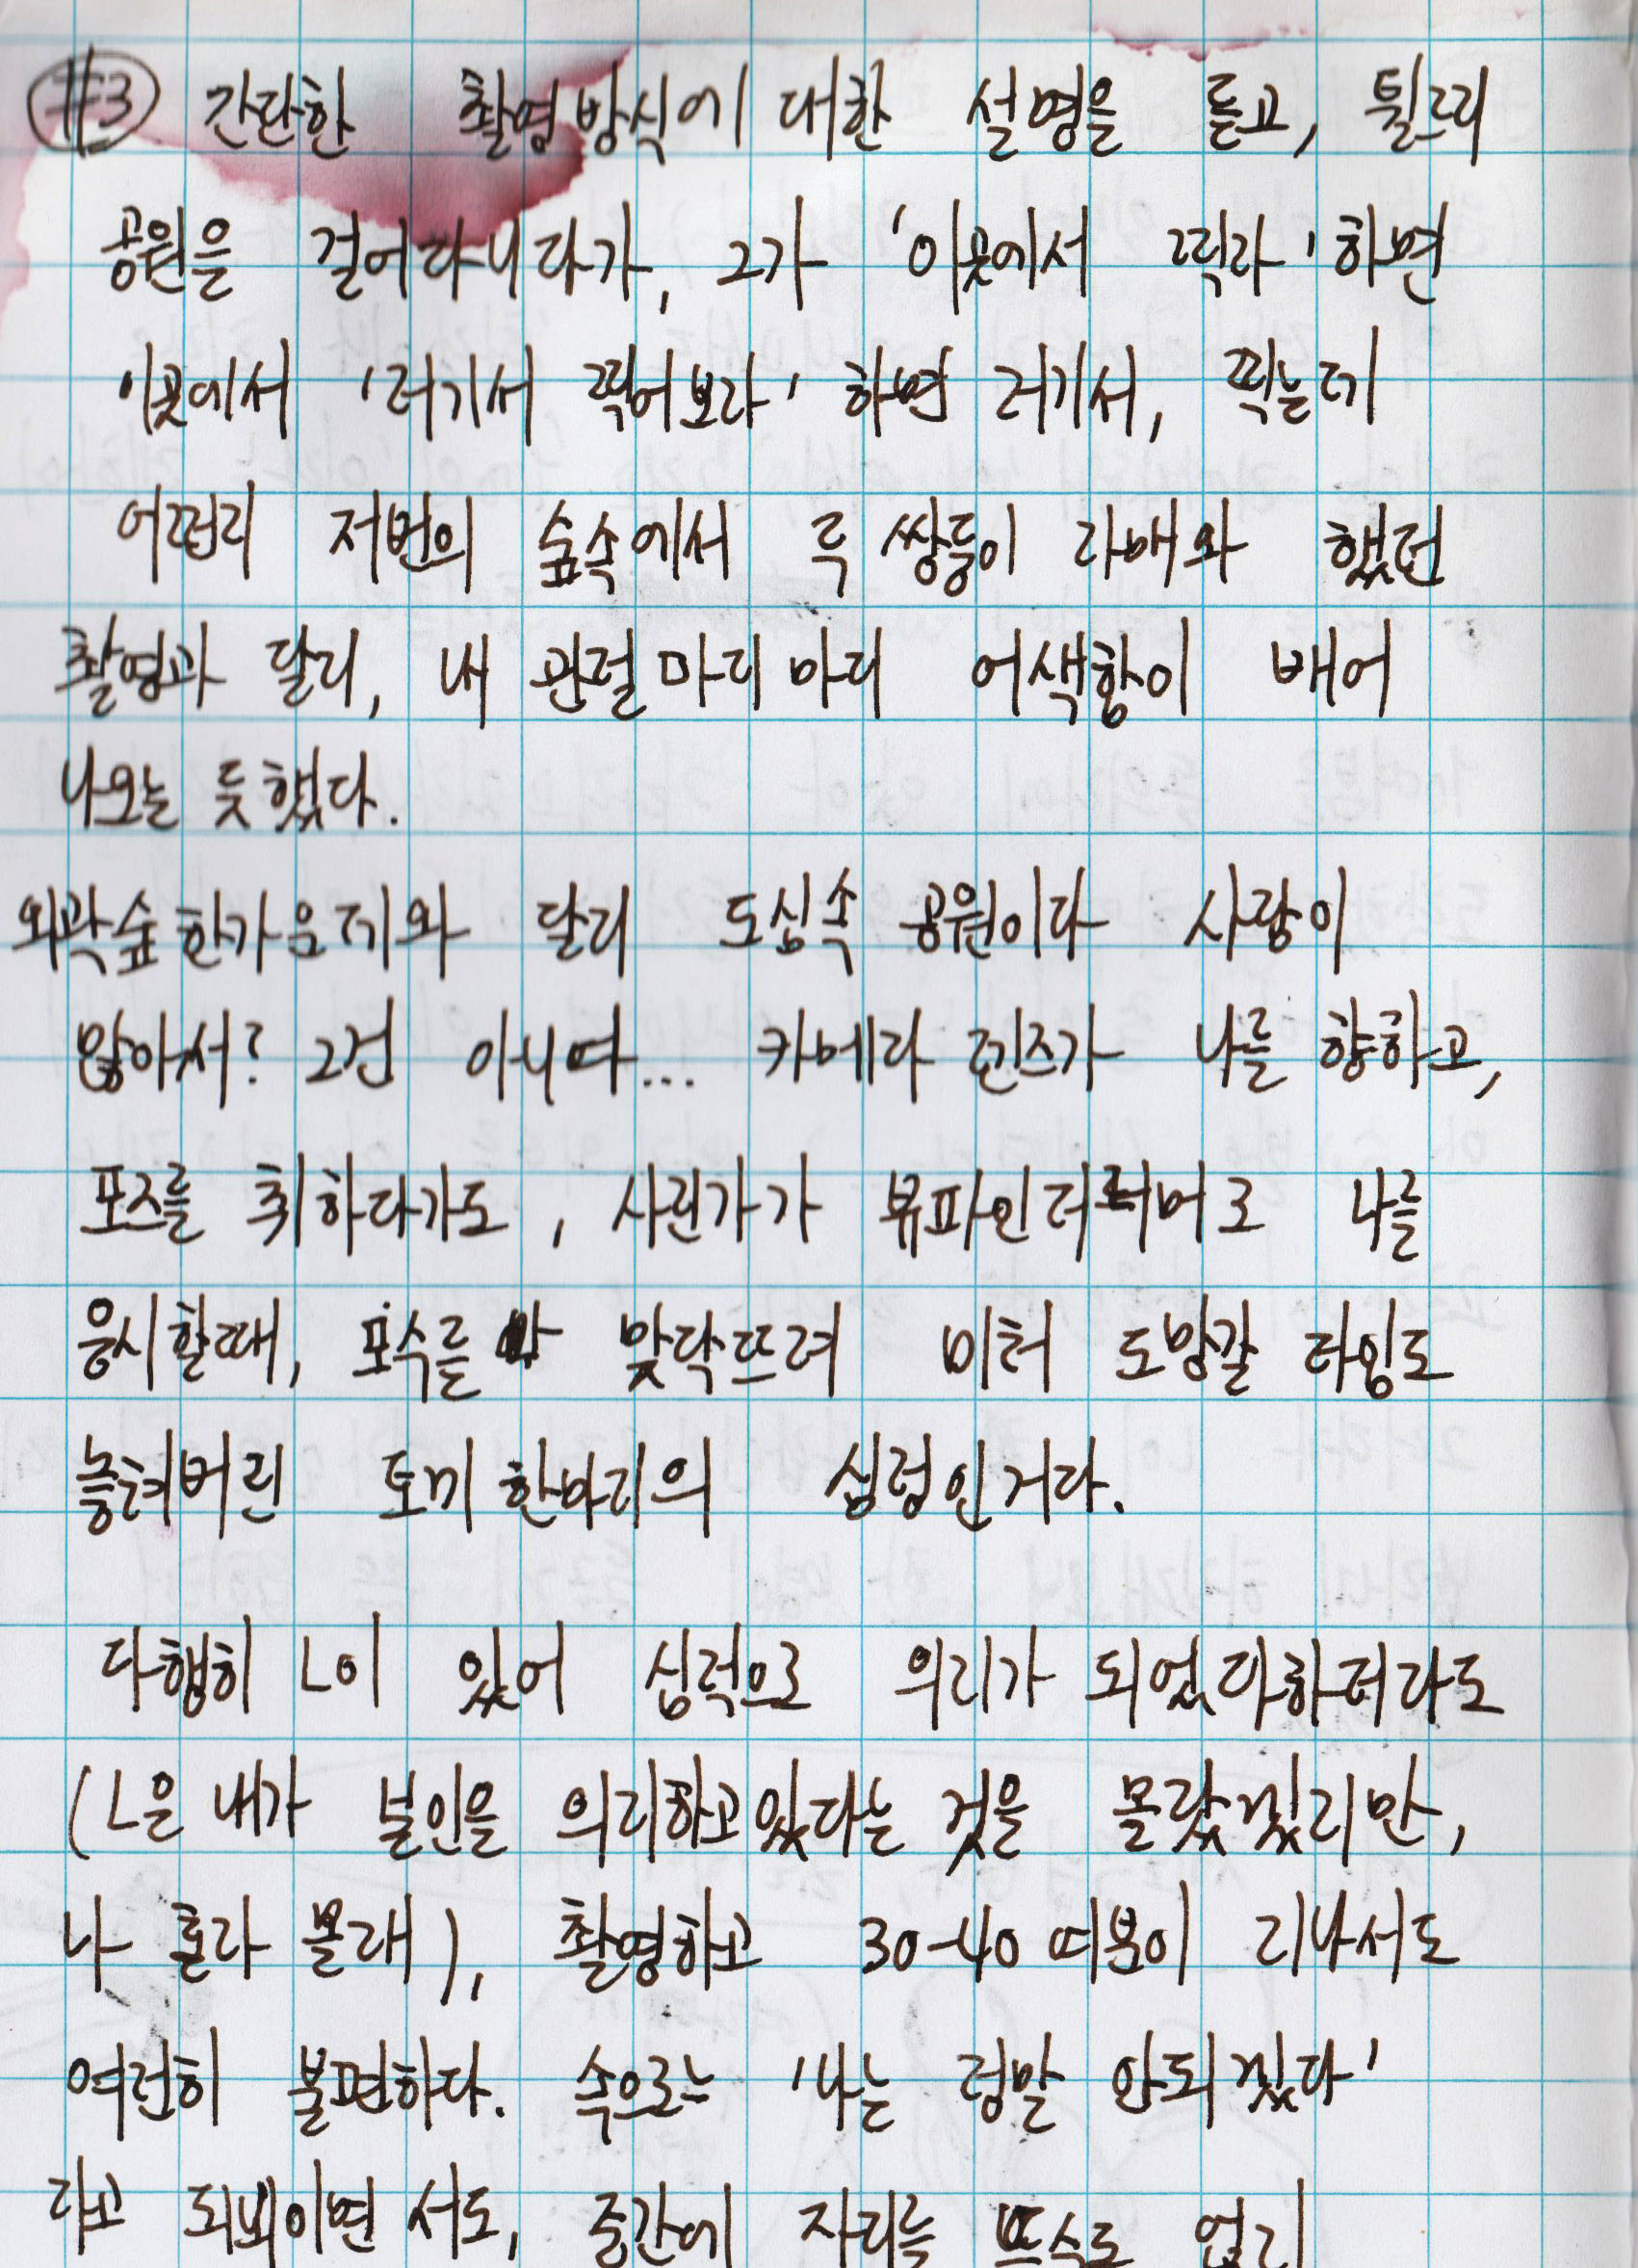 #3 간단한 촬영방식에 대한 설명을 듣고, 튈르리
공원을 걸어다니다가, 그가 '이곳에서 찍자' 하면
이곳에서 '저기서 찍어보자' 하면 저기서, 찍는데
어쩐지 저번의 숲속에서 두 쌍둥이 자매와 했던
촬영과 달리, 내 관절마디마디 어색함이 배어
나오는 듯했다.
외곽숲한가운데와 달리 도심속 공원이다 사람이
많아서? 그건 아니며... 카메라 렌즈가 나를 향하고,
포즈를 취하다가도, 사진가가 뷰파인더너머로 나를
응시할때, 포수를 맞닥뜨려 미처 도망갈 타임도
놓쳐버린 토끼한마리의 심정인거다.
다행히 L이 있어 심적으로 의지가 되었다하더라도
(L은 내가 본인을 의지하고있다는 것을 몰랐겠지만,
나 혼자 몰래), 촬영하고 30-40여분이 지나서도
여전히 불편하다. 속으로는 '나는 정말 안되겠다'
라고 되뇌이면서도, 중간에 자리를 뜰수도 없지